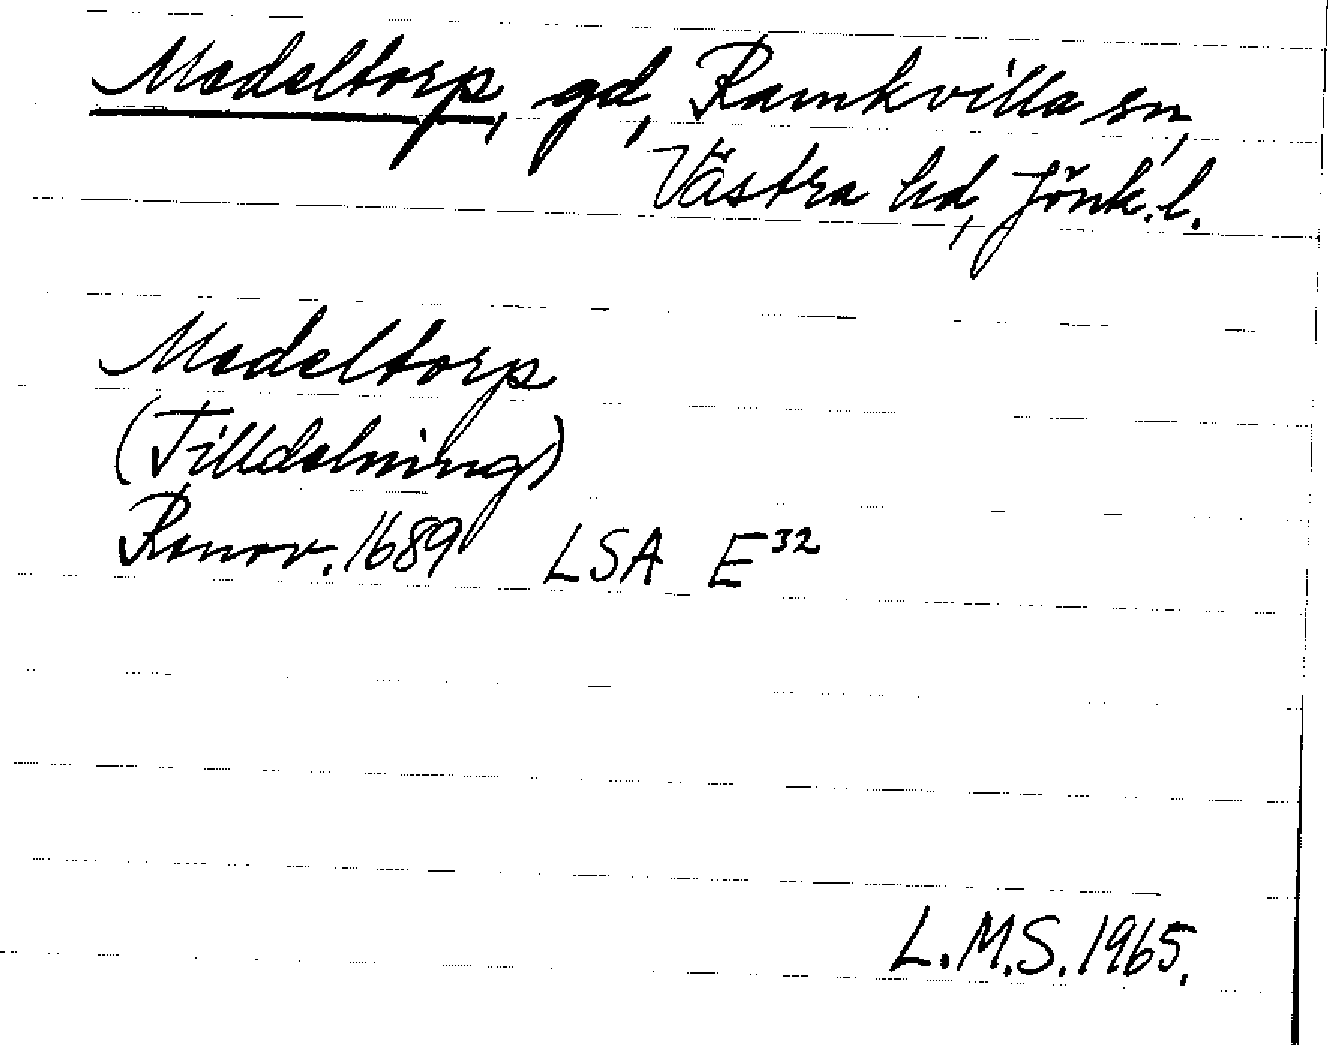 Medeltorp, gd, Ramkvilla sn,
Västra hd, Jönk. l.
Medeltorp
(Tilldelning)
Renov. 1689 LSA E³²
L.M.S. 1965.